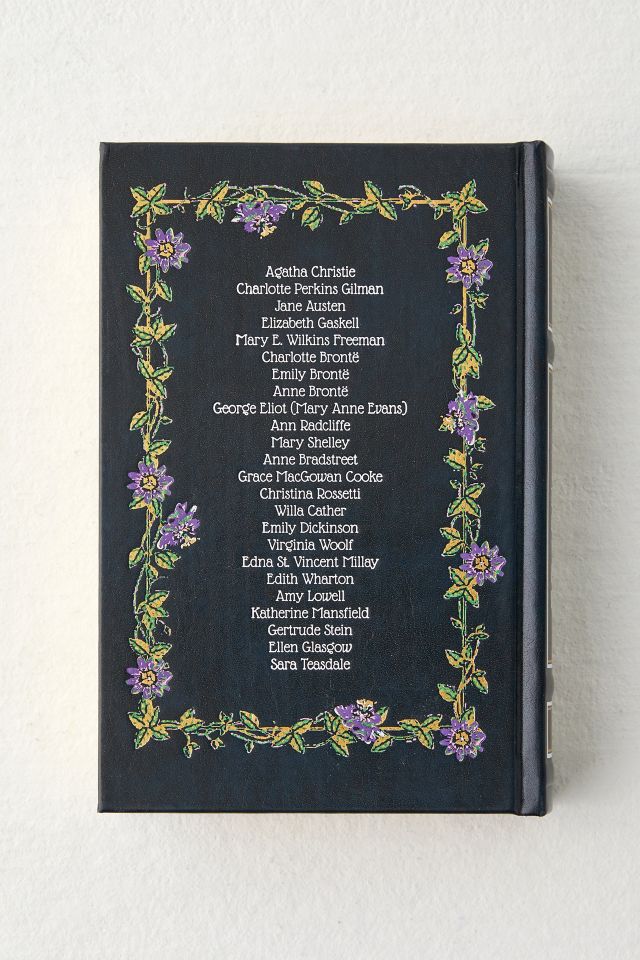 Agatha Christie
Charlotte Perkins Gilman
Jane Austen
Elizabeth Gaskell
Mary E. Wilkins Freeman
Charlotte Brontë
Emily Brontë
Anne Brontë
George Eliot (Mary Anne Evans)
Ann Radcliffe
Mary Shelley
Anne Bradstreet
Grace MacGowan Cooke
Christina Rossetti
Willa Cather
Emily Dickinson
Virginia Woolf
Edna St. Vincent Millay
Edith Wharton
Amy Lowell
Katherine Mansfield
Gertrude Stein
Ellen Glasgow
Sara Teasdale